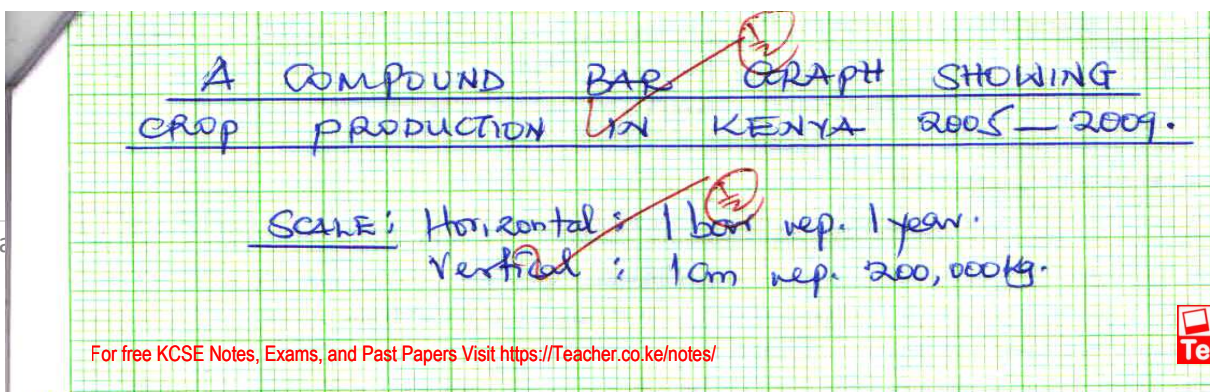 A COMPOUND BAR GRAPH SHOWING
CROP PRODUCTION IN KENYA 2005 — 2009.
SCALE: Horizontal : 1 bar rep. 1 year.
Vertical : 1cm rep. 200,000kg.
For free KCSE Notes, Exams, and Past Papers Visit https://Teacher.co.ke/notes/
Te